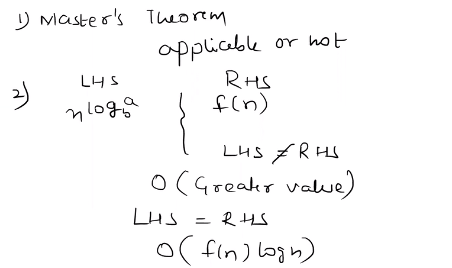 1) Master's Theorem
applicable or not
2) LHS RHS
n log_b^a { f(n)
LHS ≠ RHS
O (Greater value)
LHS = RHS
O( f(n) log n)